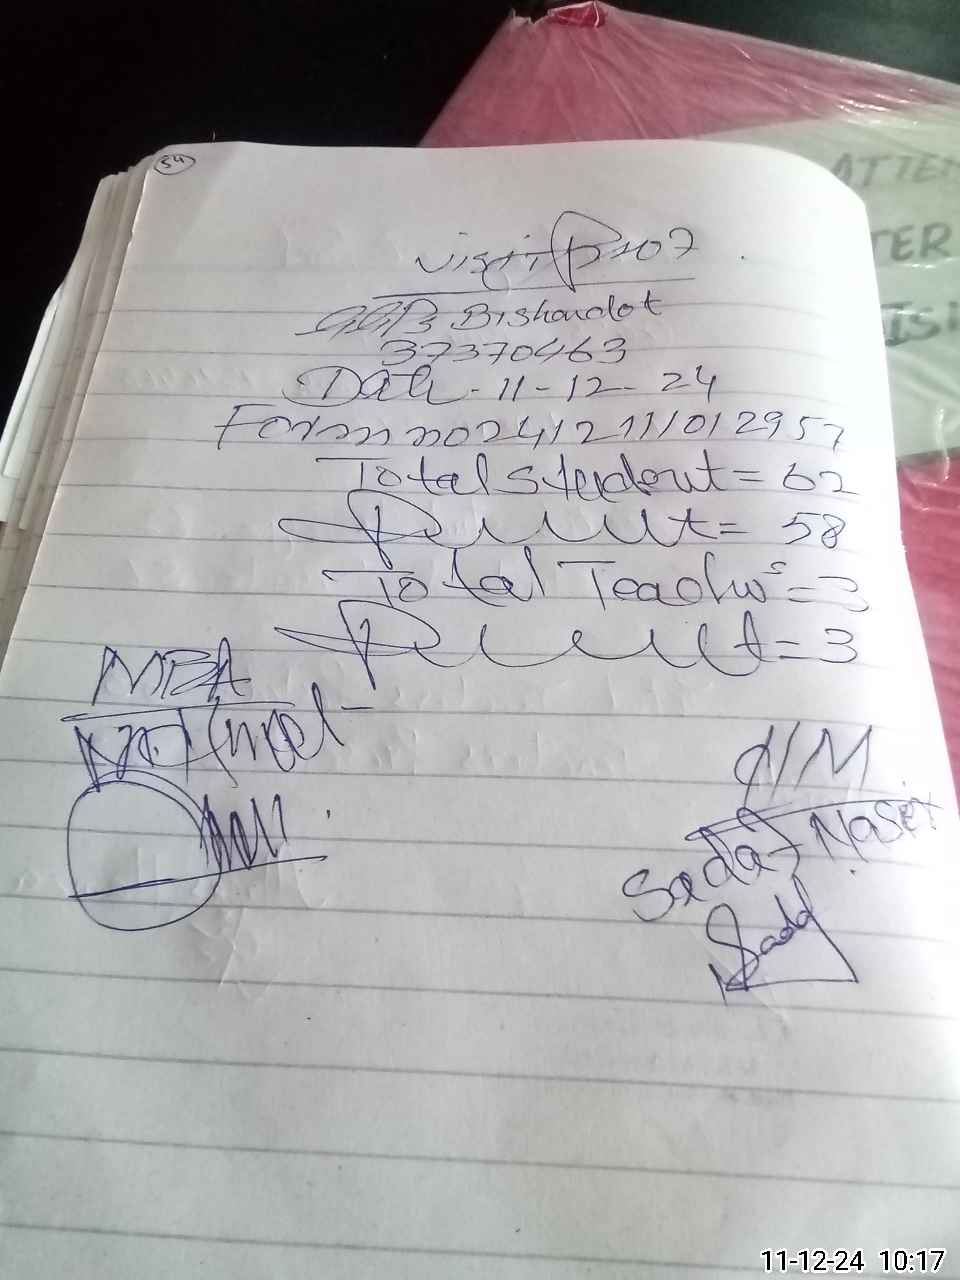 54
ATTEN
TER
ISI
Visit Pro7
GGPS Bishandot
37370463
Date - 11-12-24
Form no 2412111012957
Total student = 62
Present = 58
Total Teachers = 3
Present = 3
MEA
H/M
Sadaf Naser
Sadaf
11-12-24 10:17